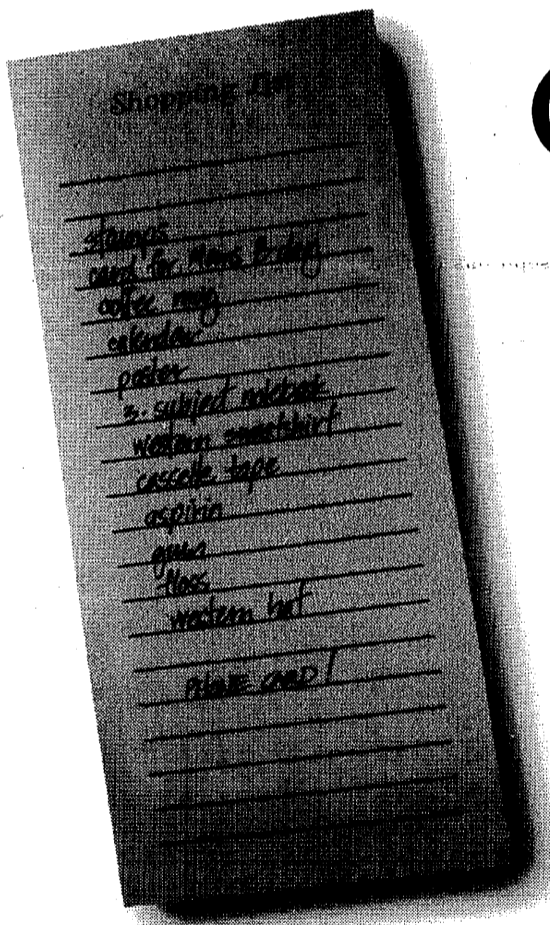 Shopping List
stamps
card for Mom's B-day
coffee mug
calendar
poster
3-subject notebook
western sweatshirt
cassette tape
aspirin
gum
floss
western hat
PHONE CARD!